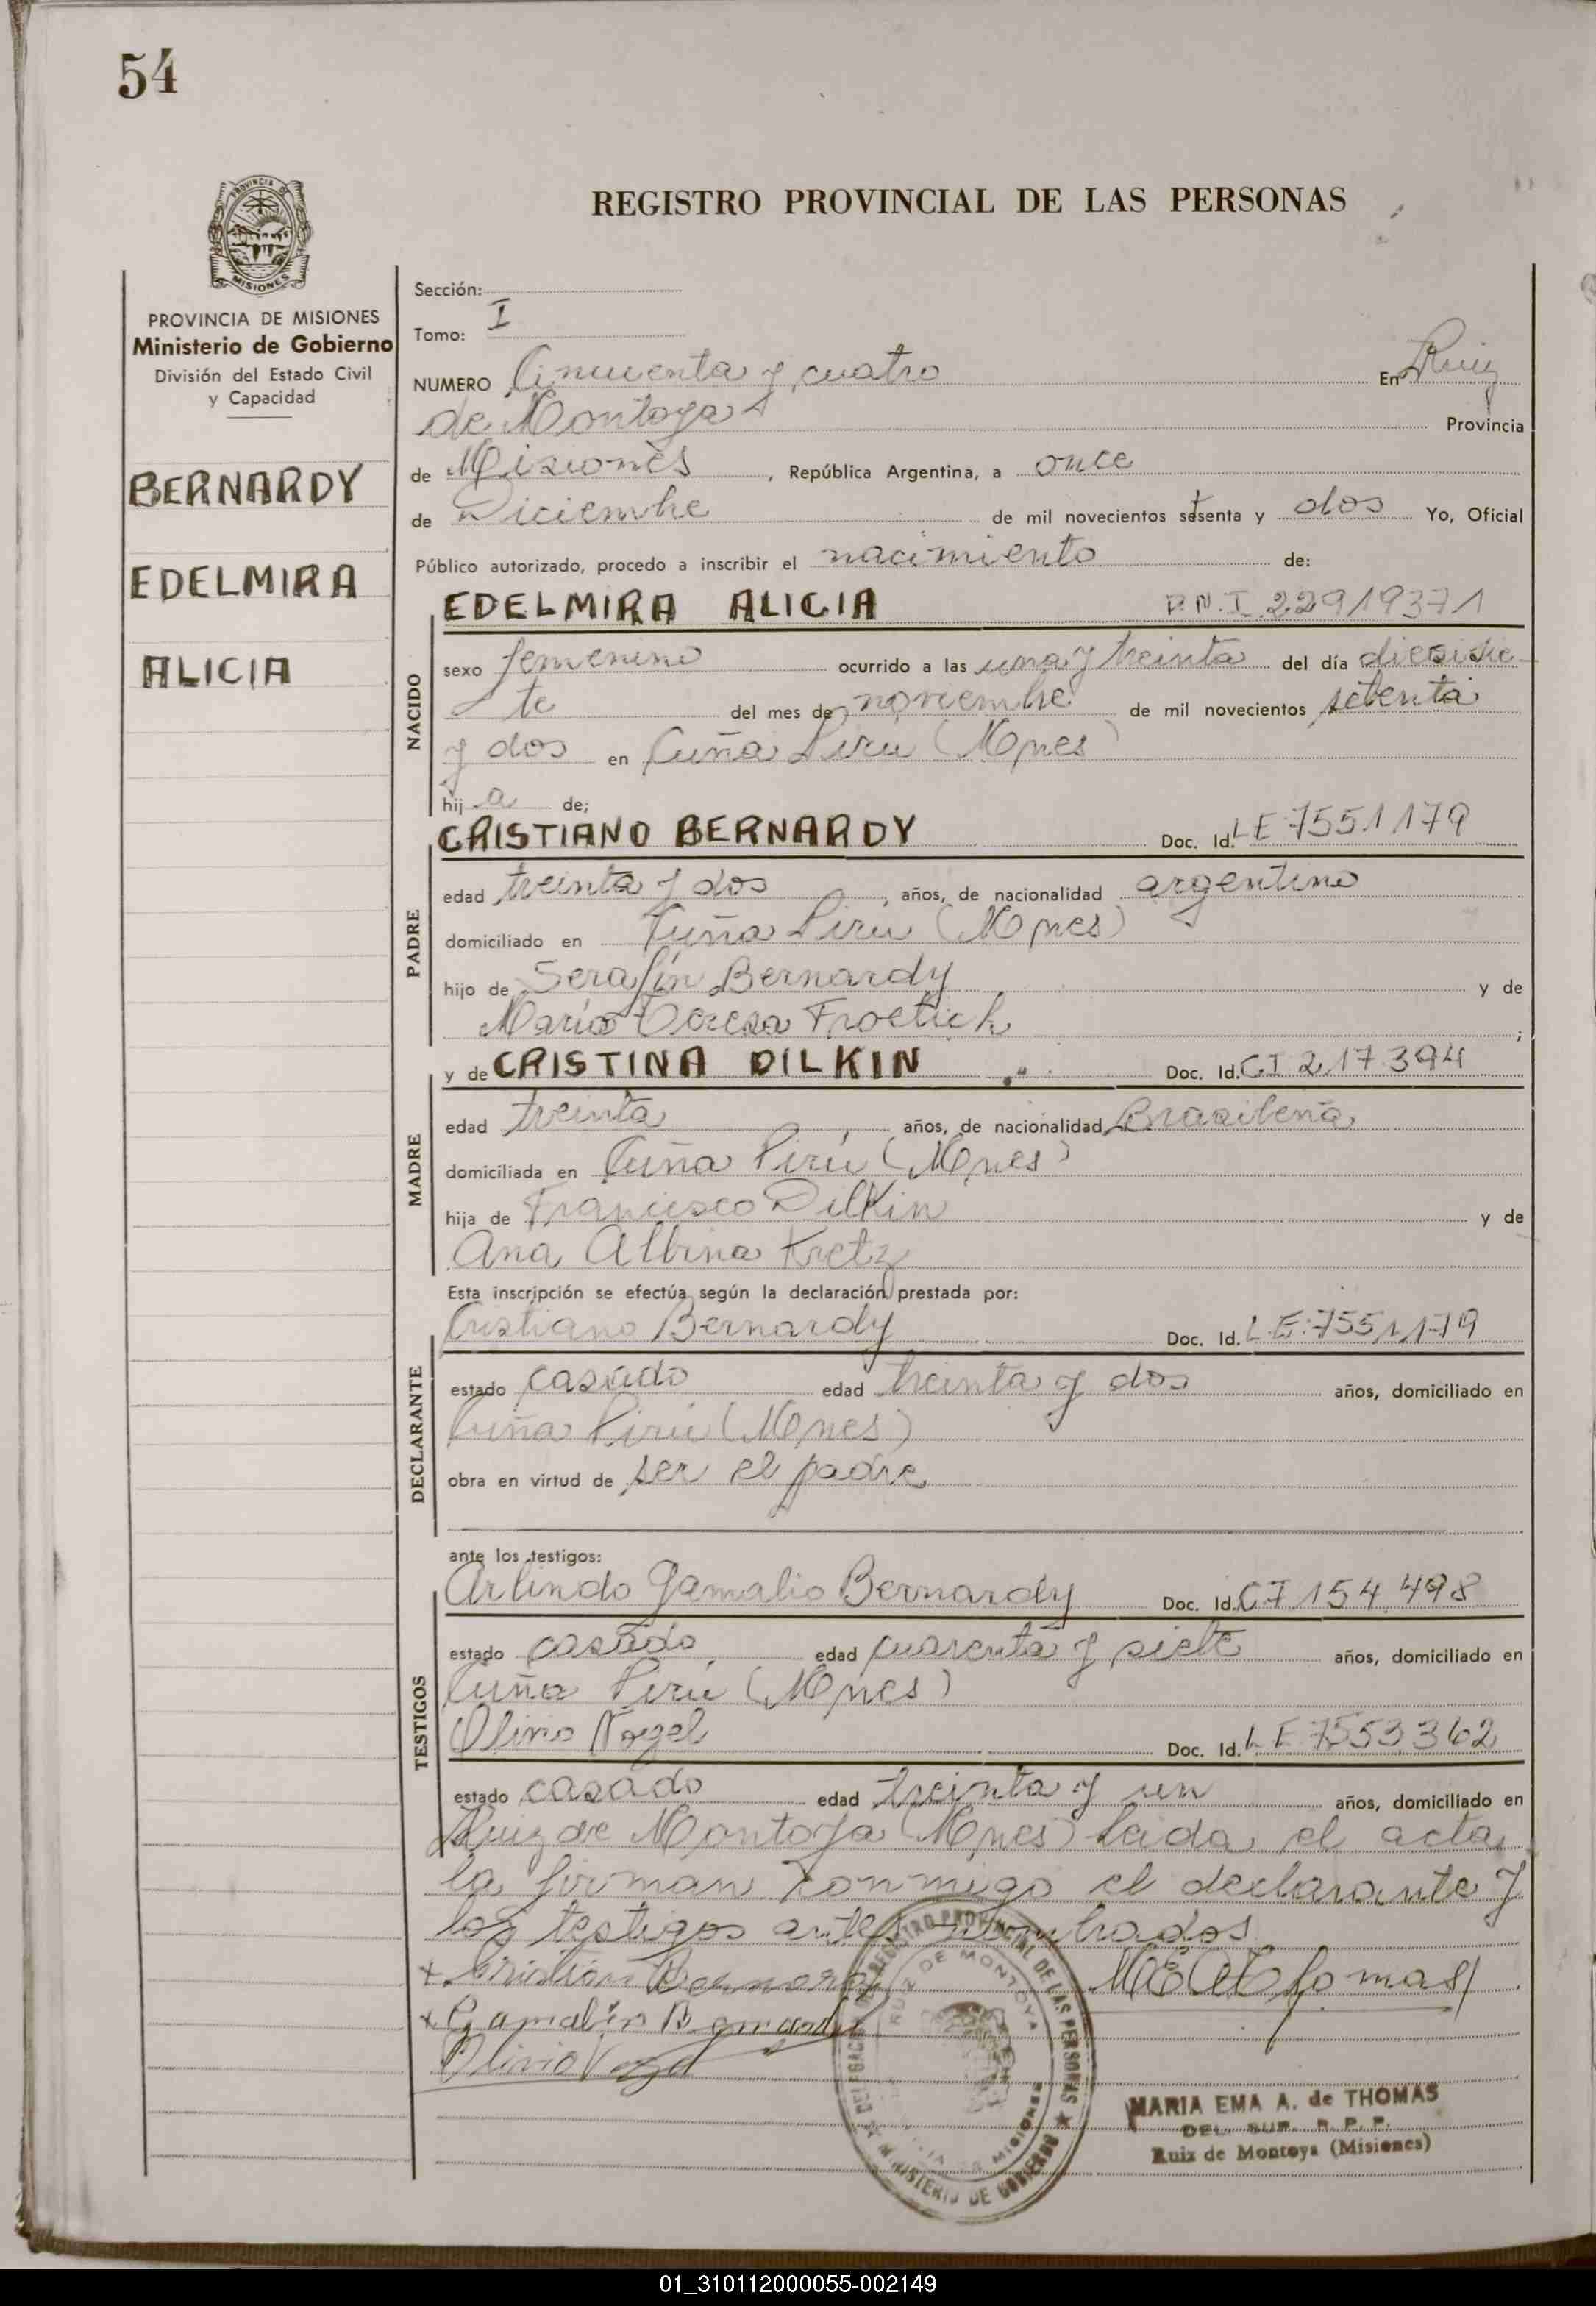 54
PROVINCIA DE
MISIONES
REGISTRO PROVINCIAL DE LAS PERSONAS
PROVINCIA DE MISIONES
Ministerio de Gobierno
División del Estado Civil
y Capacidad
BERNARDY
EDELMIRA
ALICIA
Sección:
Tomo: I
NUMERO Cincuenta y cuatro En Ruiz
de Montoya Provincia
de Misiones, República Argentina, a once
de Diciembre de mil novecientos setenta y dos Yo, Oficial
Público autorizado, procedo a inscribir el nacimiento de:
NACIDO
EDELMIRA ALICIA D.N.I. 22919371
sexo femenino ocurrido a las una y treinta del día diecisie-
te del mes de noviembre de mil novecientos setenta
y dos en Cuña Pirú (Mnes)
hij a de;
PADRE
CRISTIANO BERNARDY Doc. Id. LE 7551179
edad treinta y dos, años, de nacionalidad argentino
domiciliado en Cuña Pirú (Mnes)
hijo de Serafín Bernardy y de
María Teresa Froelich;
MADRE
y de CRISTINA DILKIN Doc. Id. CI 217.394
edad treinta, años, de nacionalidad Brasileña
domiciliada en Cuña Pirú (Mnes)
hija de Francisco Dilkin y de
Ana Albina Kretz
Esta inscripción se efectúa según la declaración prestada por:
DECLARANTE
Cristiano Bernardy Doc. Id. L.E: 7551179
estado casado edad treinta y dos años, domiciliado en
Cuña Pirú (Mnes)
obra en virtud de ser el padre
ante los testigos:
TESTIGOS
Arlindo Gamalio Bernardy Doc. Id. CI 154.498
estado casado, edad cuarenta y siete años, domiciliado en
Cuña Pirú (Mnes)
Olivio Vogel Doc. Id. LE 7553362
estado casado edad treinta y un años, domiciliado en
Ruiz de Montoya (Mnes) leida el acta
la firman conmigo el declarante y
los testigos antes nombrados
+ Cristian Bernardy
+ Gamalio Bernardy
Olivio Vogel
REGISTRO PROVINCIAL DE LAS PERSONAS
RUIZ DE MONTOYA
MISIONES
MINISTERIO DE GOBIERNO
MARIA EMA A. de THOMAS
DEL. SUP. R. P. P.
Ruiz de Montoya (Misiones)
01_310112000055-002149